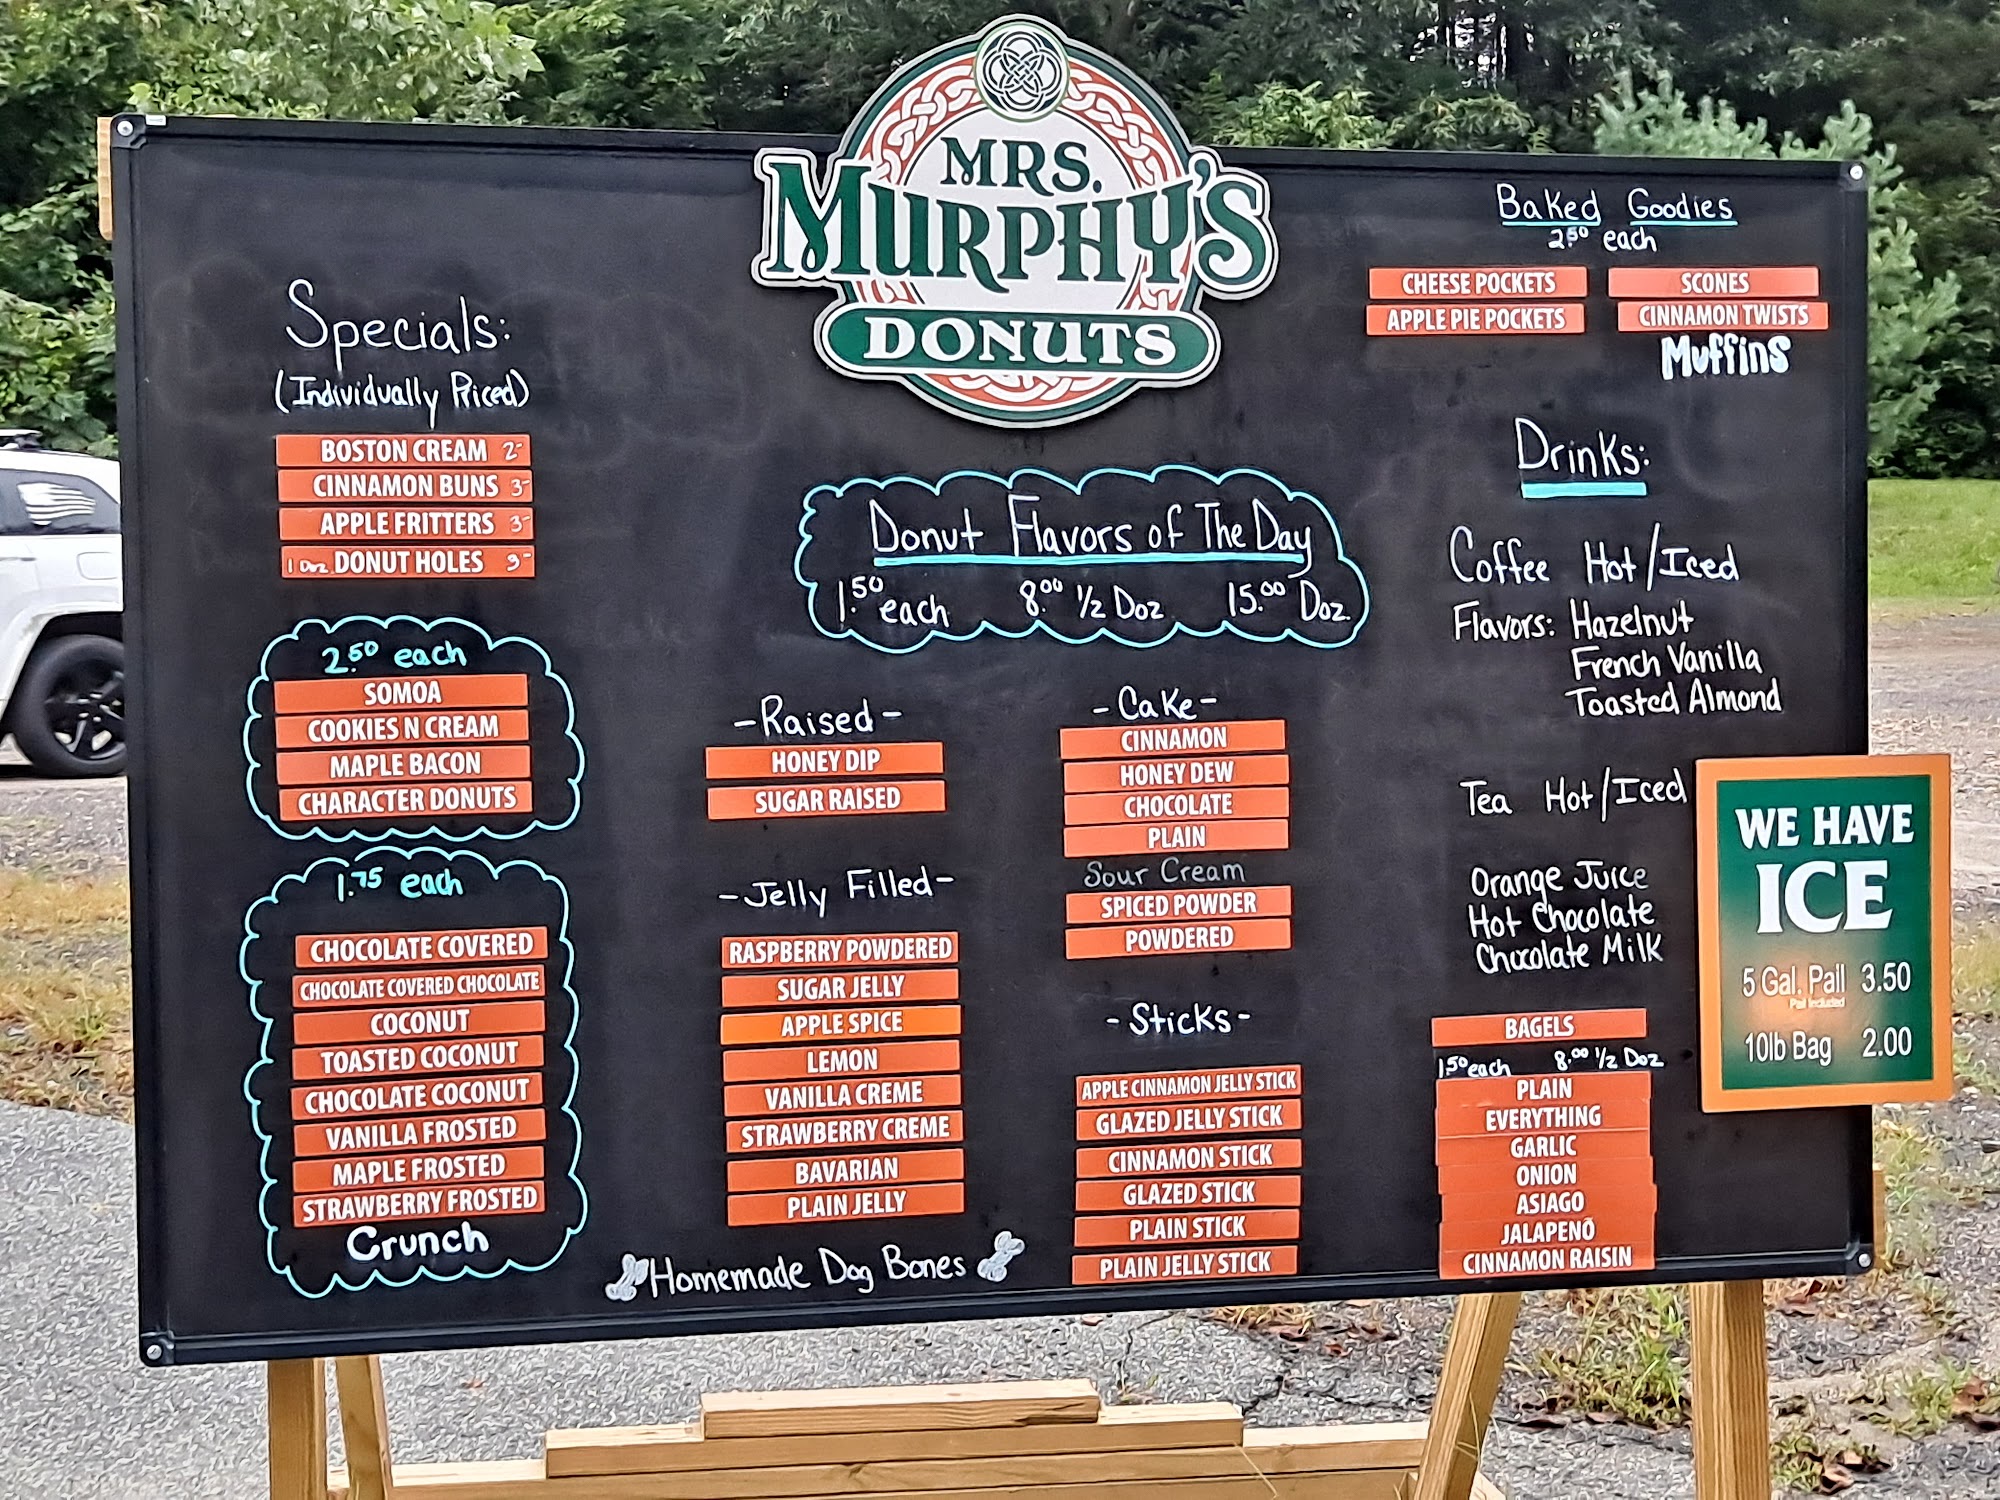 MRS.
MURPHY'S
DONUTS
Specials:
(Individually Priced)
BOSTON CREAM 2-
CINNAMON BUNS 3-
APPLE FRITTERS 3-
1 Doz. DONUT HOLES 3-
2.50 each
SOMOA
COOKIES N CREAM
MAPLE BACON
CHARACTER DONUTS
1.75 each
CHOCOLATE COVERED
CHOCOLATE COVERED CHOCOLATE
COCONUT
TOASTED COCONUT
CHOCOLATE COCONUT
VANILLA FROSTED
MAPLE FROSTED
STRAWBERRY FROSTED
Crunch
Donut Flavors of The Day
1.50 each 8.00 1/2 Doz 15.00 Doz.
-Raised-
HONEY DIP
SUGAR RAISED
-Jelly Filled-
RASPBERRY POWDERED
SUGAR JELLY
APPLE SPICE
LEMON
VANILLA CREME
STRAWBERRY CREME
BAVARIAN
PLAIN JELLY
Homemade Dog Bones
-Cake-
CINNAMON
HONEY DEW
CHOCOLATE
PLAIN
Sour Cream
SPICED POWDER
POWDERED
-Sticks-
APPLE CINNAMON JELLY STICK
GLAZED JELLY STICK
CINNAMON STICK
GLAZED STICK
PLAIN STICK
PLAIN JELLY STICK
Baked Goodies
2.50 each
CHEESE POCKETS SCONES
APPLE PIE POCKETS CINNAMON TWISTS
Muffins
Drinks:
Coffee Hot/Iced
Flavors: Hazelnut
French Vanilla
Toasted Almond
Tea Hot/Iced
Orange Juice
Hot Chocolate
Chocolate Milk
BAGELS
1.50 each 8.00 1/2 Doz
PLAIN
EVERYTHING
GARLIC
ONION
ASIAGO
JALAPEÑO
CINNAMON RAISIN
WE HAVE
ICE
5 Gal. Pail 3.50
Pail Included
10lb Bag 2.00